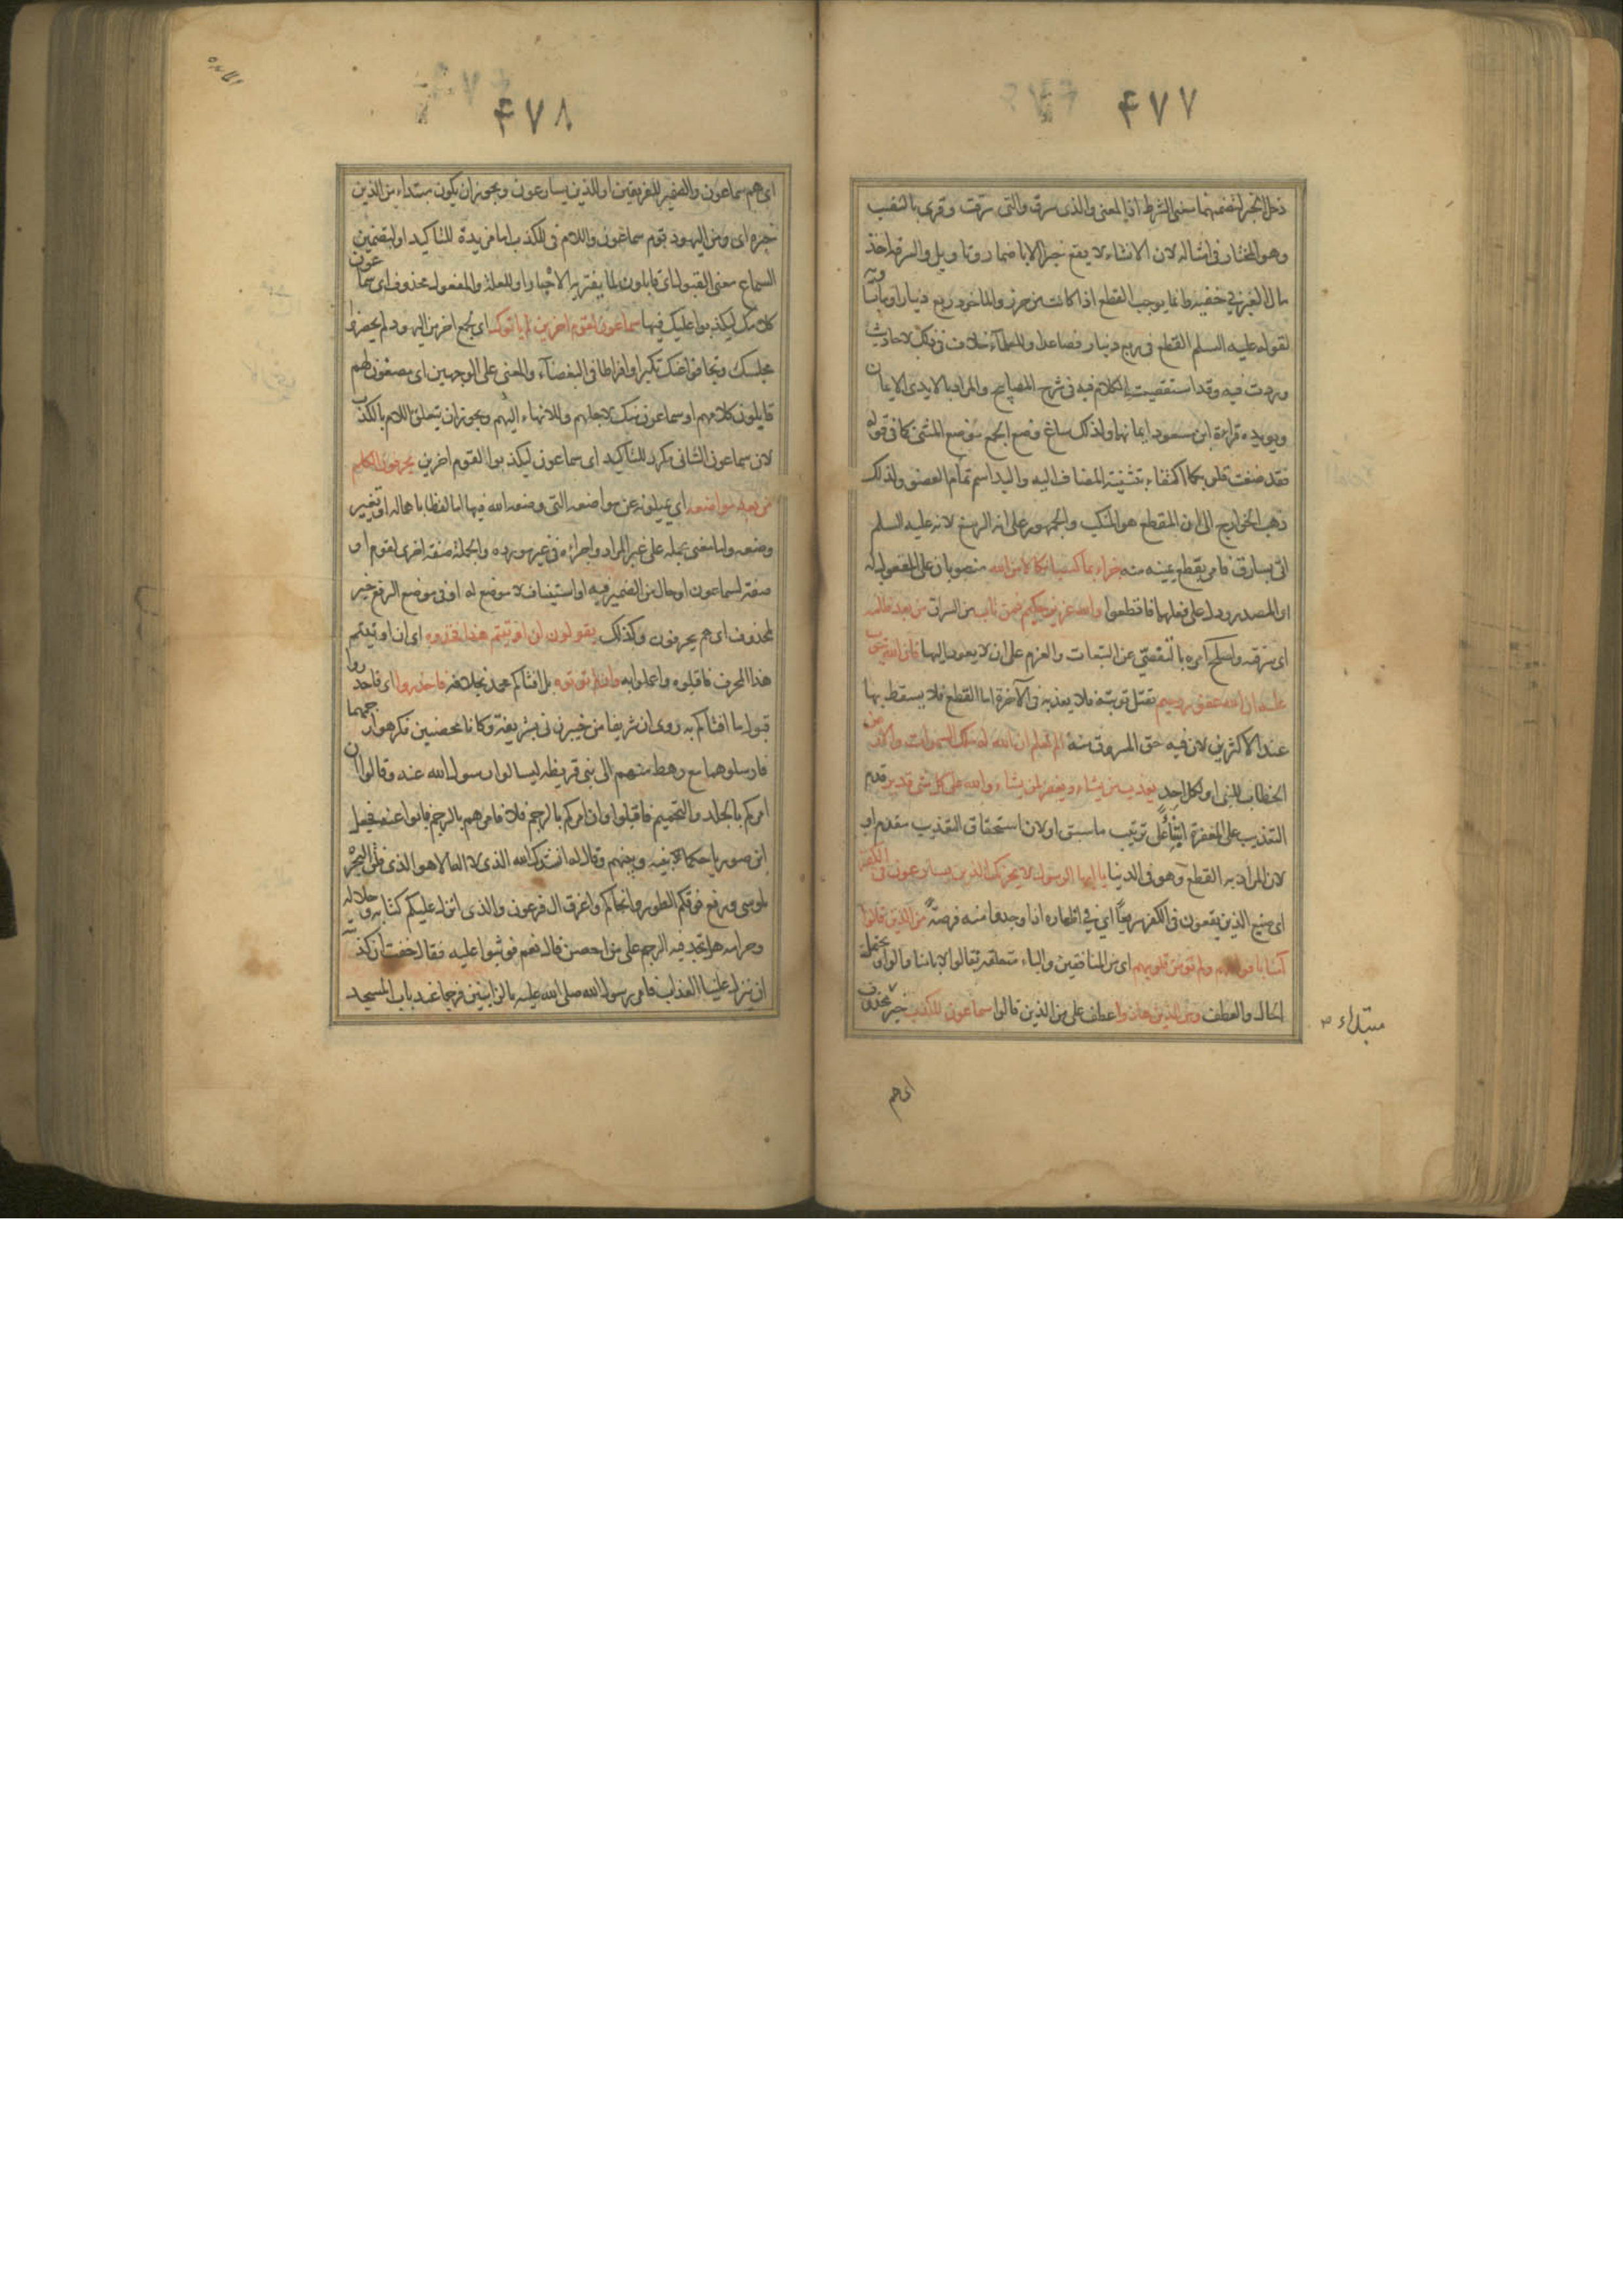 ۴۷۷
دخل الخبر لتضمنهما معنى الشرط اذ المعنى والذى سرق والتى سرقت وقرئ بالنصب
وهو المختار فى امثاله لان الانشاء لا يقع خبرا الا باضمار وتاويل والسرقة اخذ
مال الغير فى خفية وانما يوجب القطع اذا كانت من حرز والماخوذ ربع دينار او ما يساويه
لقوله عليه السلم القطع فى ربع دينار فصاعدا وللعلماء خلاف فى ذلك لاحاديث
وردت فيه وقد استقصيت الكلام فيه فى شرح المصابيح والمراد بالايدى الايمان
ويويده قراءة ابن مسعود ايمانهما ولذلك ساغ وضع الجمع موضع المثنى كما فى قوله
فقد صغت قلوبكما اكتفاء بتثنية المضاف اليه واليد اسم تمام العضو ولذلك
ذهب الخوارج الى ان المقطع هو المنكب والجمهور على انه الرسغ لانه عليه السلم
اتى بسارق فامر بقطع يمينه منه جزاء بما كسبا نكالا من الله منصوبان على المفعول له
او المصدر ودل على فعلهما فاقطعوا والله عزيز حكيم فمن تاب من السراق من بعد ظلمه
اى سرقته واصلح امره بالتفصى عن التبعات والعزم على ان لا يعود اليها فان الله يتوب
عليه ان الله غفور رحيم يقبل توبته فلا يعذبه فى الآخرة اما القطع فلا يسقط بها
عند الاكثرين لان فيه حق المسروق منه الم تعلم ان الله له ملك السموات والارض
الخطاب للنبى او لكل احد يعذب من يشاء ويغفر لمن يشاء والله على كل شى قدير قدم
التعذيب على المغفرة ايتاء على ترتيب ما سبق او لان استحقاق التعذيب مقدم او
لان المراد به القطع وهو فى الدنيا يا ايها الرسول لا يحزنك الذين يسارعون فى الكفر
اى صنيع الذين يقعون فى الكفر سريعا اى فى اظهاره اذا وجدوا منه فرصة من الذين قالوا
آمنا بافواههم ولم تومن قلوبهم اى من المنافقين والباء متعلقة بقالوا لا بامنا والواو يحتمل
الحال والعطف ومن الذين هادوا عطف على من الذين قالوا سماعون للكذب خبر محذوف
مبتداء
اى هم
۴۷۸
اى هم سماعون والضمير للفريقين او للذين يسارعون ويجوز ان يكون مبتداء من الذين
خبره اى ومن اليهود قوم سماعون واللام فى للكذب اما مزيدة للتاكيد او لتضمين
السماع معنى القبول اى قابلون لما يفتريه الاحبار او للعلة والمفعول محذوف اى سماعون
كلامك ليكذبوا عليك فيها سماعون لقوم اخرين لم ياتوك اى لجمع اخر من اليهود لم يحضروا
مجلسك وتجافوا عنك تكبرا وافراطا فى البغضاء والمعنى على الوجهين اى مصغون لهم
قايلون كلامهم او سماعون منك لاجلهم وللانهاء اليهم ويجوز ان يتعلق اللام بالكذب
لان سماعون الثانى مكرر للتاكيد اى سماعون ليكذبوا القوم اخرين يحرفون الكلم
من بعد مواضعه اى يميلونه عن مواضعه التى وضعه الله فيها اما لفظا باهماله او تغيير
وضعه واما معنى بحمله على غير المراد واجرائه فى غير مورده والجملة صفة اخرى لقوم او
صفة لسماعون او حال من الضمير فيه او استيناف لا موضع له او فى موضع الرفع خبر
لمحذوف اى هم يحرفون وكذلك يقولون ان اوتيتم هذا فخذوه اى ان اوتيتم
هذا المحرف فاقبلوه واعملوا به وان لم توتوه بل افتاكم محمد بخلافه فاحذروا اى فاحذروا
قبول ما افتاكم به روى ان شريفا من خيبر زنى بشريفة وكانا محصنين فكرهوا رجمهما
فارسلوهما مع رهط منهم الى بنى قريظة ليسالوا رسول الله عنه وقالوا ان
امركم بالجلد والتحميم فاقبلوا وان امركم بالرجم فلا فامرهم بالرجم فابوا عنه فجعل
ابن صوريا حكما بينه وبينهم وقال له انشدك الله الذى لا اله الا هو الذى فلق البحر
لموسى ورفع فوقكم الطور وانجاكم واغرق ال فرعون والذى انزل عليكم كتابه وحلاله
وحرامه هل تجد فيه الرجم على من احصن قال نعم فوثبوا عليه فقال خفت ان كذبته
ان ينزل علينا العذاب فامر رسول الله صلى الله عليه بالزانيين فرجما عند باب المسجد